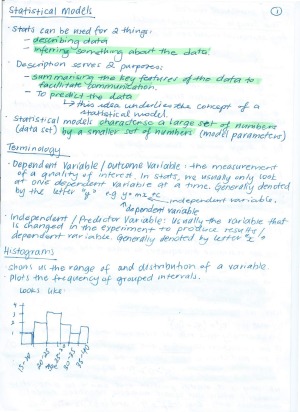 Statistical Models
1
· Stats can be used for 2 things:
- describing data
- inferring something about the data.
· Description serves 2 purposes:
- summarising the key features of the data to
facilitate communication.
- To predict the data
↳ this idea underlies the concept of a
statistical model.
· Statistical models characterise a large set of numbers
(data set) by a smaller set of numbers (model parameters)
Terminology
· Dependent Variable / Outcome Variable: the measurement
of a quality of interest. In stats, we usually only look
at one dependent variable at a time. Generally denoted
by the letter "y" e.g y = mx+c independent variable.
dependent variable
· Independent / Predictor Variable: Usually the variable that
is changed in the experiment to produce results /
dependent variable. Generally denoted by letter "x"
Histograms
· shows us the range of and distribution of a variable.
· plots the frequency of grouped intervals.
Looks like:
4
3
2
1
15-20 20-25 25-30 30-35 35-40
Age